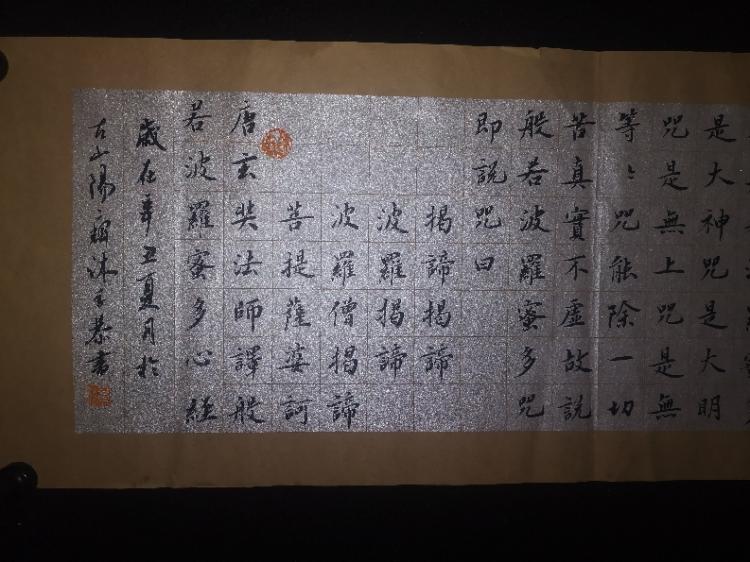 是大神咒是大明
咒是無上咒是無
等〻咒能除一切
苦真實不虛故說
般若波羅蜜多咒
即說咒曰
揭諦揭諦
波羅揭諦
波羅僧揭諦
菩提薩婆訶
唐玄奘法師譯般
若波羅蜜多心經
歲在辛丑夏月於
古山陽沐手恭書